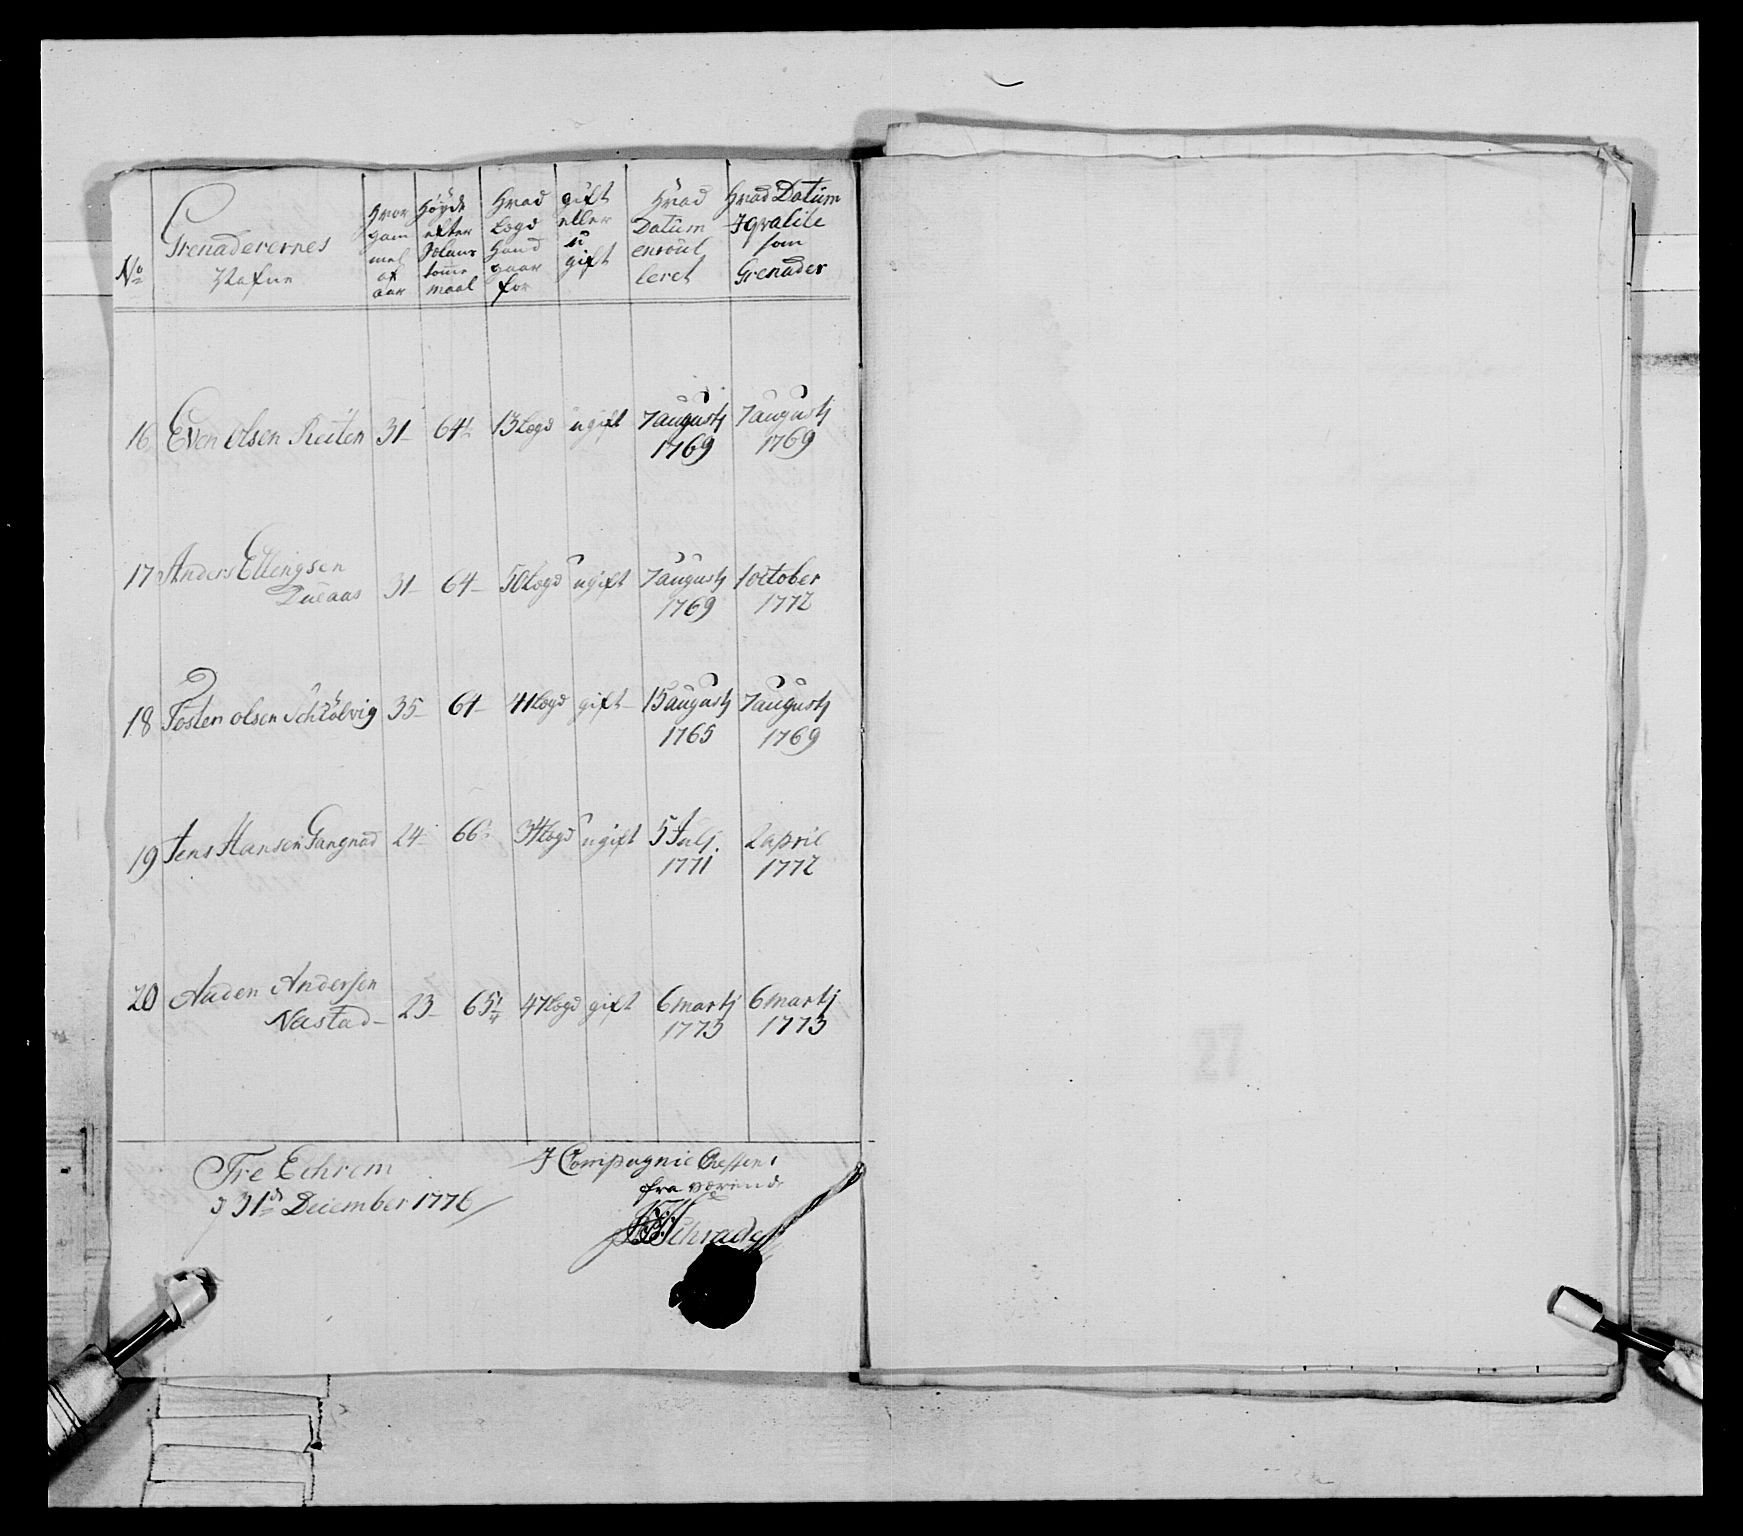 No
Grenaderernes
Nafne
Hvor
gam
mel
af
aar
Høyde
efter
tome
maal
Hvad
Lægd
Hand
gaar
for
gift
eller
u
gift
Hvad
Datum
enroul
leret
Hvad Datum
J qvalite
som
Grenader
16 Even Olsen Reiten 31 64½ 13 Lægd ugift 7 augustj 7 augustj
1769 1769
17 Anders Ellingsen
31 64 50 Lægd ugift 7 augustj 1 october
1769 1772
18 Tosten olsen Schiølvig 35 64 41 Lægd gift 15 augustj 7 augustj
1765 1769
19 Jens Hansen Gangnad 24 66 34 Lægd ugift 5 Julj 2 april
1771 1772
20 Auden Andersen
Nastad 23 65¼ 47 Lægd gift 6 martj 6 martj
1773 1773
Tre Echrem
d 31de December 1776
J Compagnie Cheffens
fra værende
Schrader